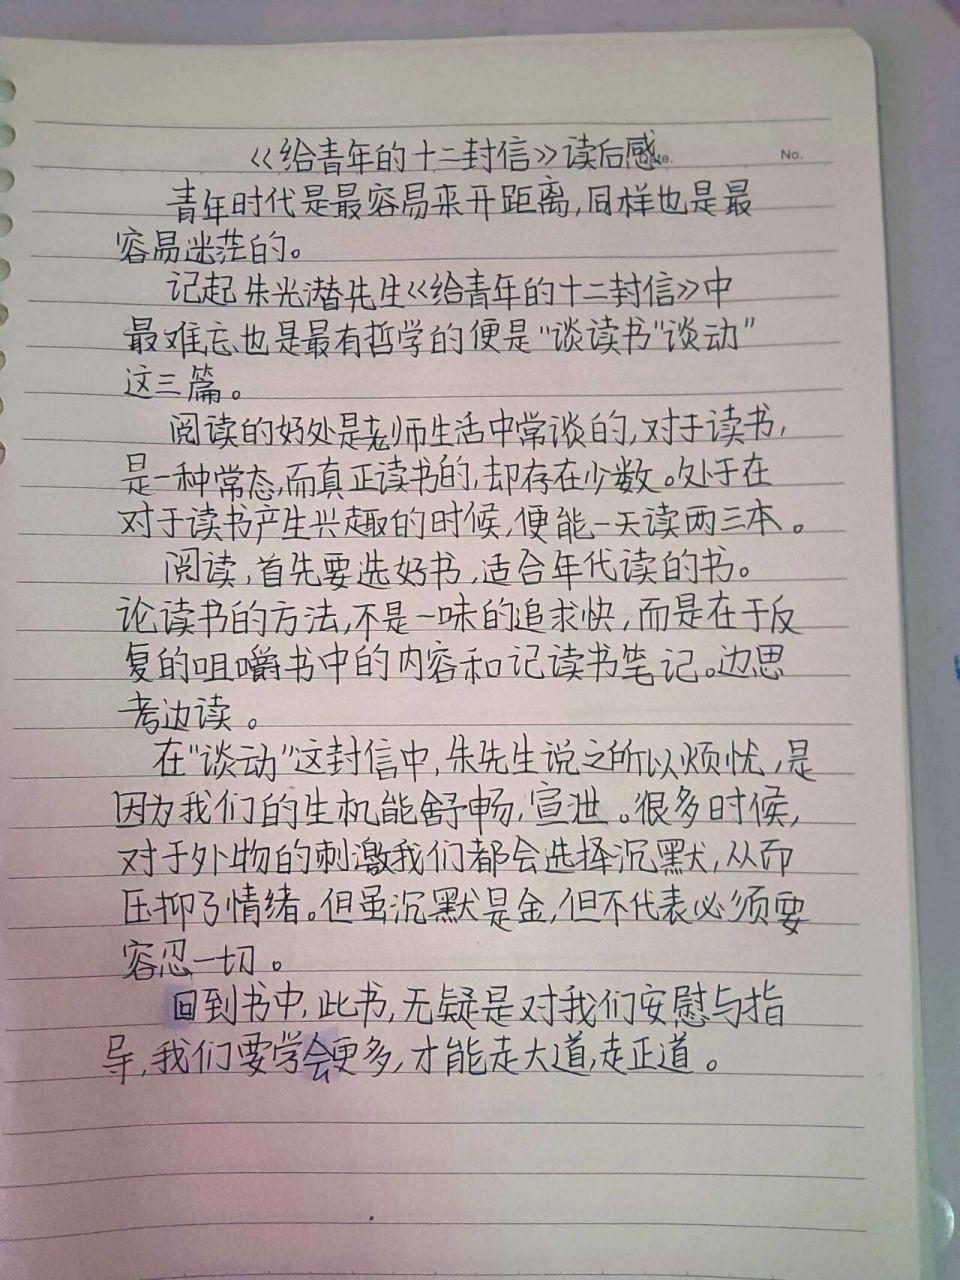 《给青年的十二封信》读后感
Date.
No.
青年时代是最容易来开距离,同样也是最
容易迷茫的。
记起朱光潜先生《给青年的十二封信》中
最难忘也是最有哲学的便是“谈读书”谈动”
这三篇。
阅读的好处是老师生活中常谈的,对于读书,
是一种常态,而真正读书的,却存在少数。处于在
对于读书产生兴趣的时候,便能一天读两三本。
阅读,首先要选好书,适合年代读的书。
论读书的方法,不是一味的追求快,而是在于反
复的咀嚼书中的内容和记读书笔记。边思
考边读。
在“谈动”这封信中,朱先生说之所以烦忧,是
因为我们的生机能舒畅,宣泄。很多时候,
对于外物的刺激我们都会选择沉默,从而
压抑了情绪。但虽沉默是金,但不代表必须要
容忍一切。
回到书中,此书,无疑是对我们安慰与指
导,我们要学会更多,才能走大道,走正道。